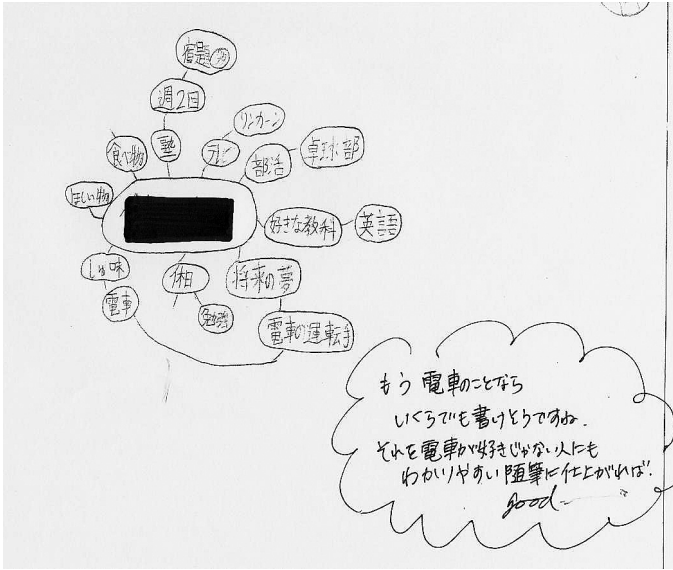 宿題
週2日
塾
食べ物
リンカーン
テレビ
部活
卓球部
ほしい物
好きな教科
英語
しゅ味
電車
休日
勉強
将来の夢
電車の運転手
もう電車のことなら
いくらでも書けそうですね.
それを電車が好きじゃない人にも
わかりやすい随筆に仕上がれば.
good